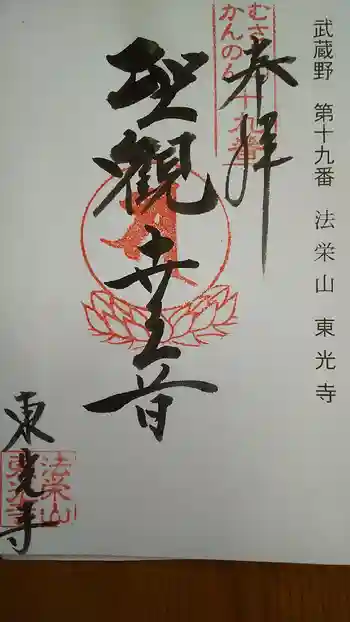 武蔵野 第十九番 法栄山 東光寺
奉拝
むさしの
かんのん 十九番
聖観世音
東光寺
法栄山
東光寺